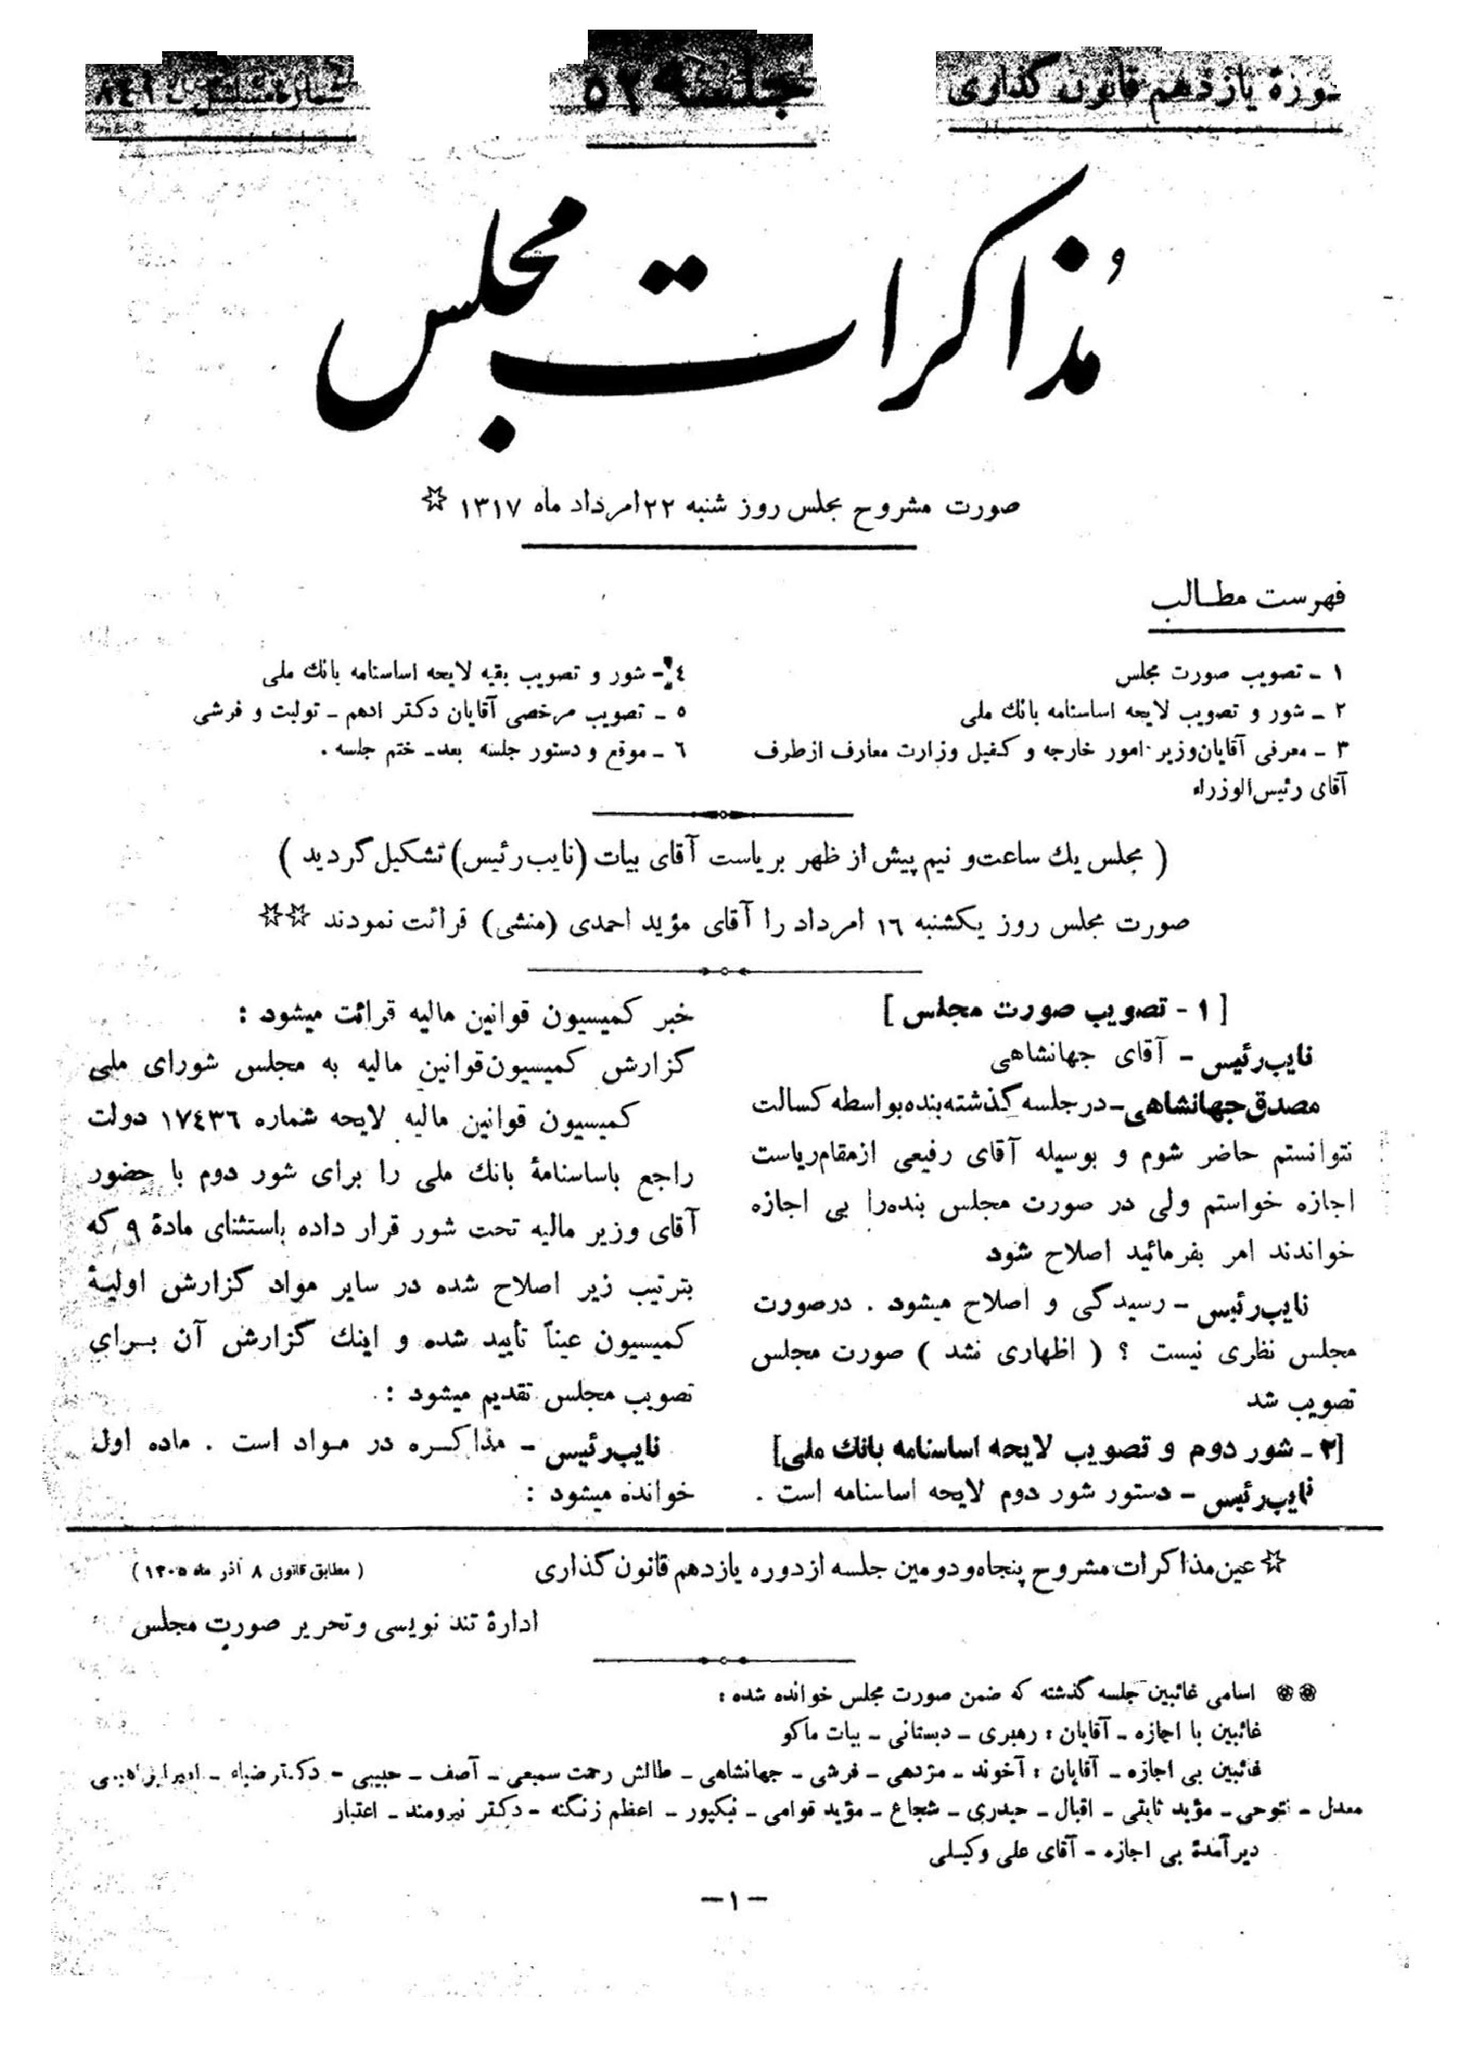 دورهٔ یازدهم قانون گذاری
جلسه ۵۲
شماره مسلسل ۸٤۹
مُذاکرات مجلس
صورت مشروح مجلس روز شنبه ۲۲ امرداد ماه ۱۳۱۷ ☆
فهرست مطالب
۱ ـ تصویب صورت مجلس
۲ ـ شور و تصویب لایحه اساسنامه بانك ملی
۳ ـ معرفی آقایان وزیر امور خارجه و کفیل وزارت معارف از طرف
آقای رئیس‌الوزراء
٤ ـ شور و تصویب بقیه لایحه اساسنامه بانك ملی
۵ ـ تصویب مرخصی آقایان دکتر ادهم ـ تولیت و فرشی
٦ ـ موقع و دستور جلسه بعد ـ ختم جلسه .
( مجلس یك ساعت و نیم پیش از ظهر بریاست آقای بیات (نایب رئیس) تشکیل گردید )
صورت مجلس روز یکشنبه ۱٦ امرداد را آقای مؤید احمدی (منشی) قرائت نمودند ☆☆
[ ۱ - تصویب صورت مجلس ]
نایب رئیس ـ آقای جهانشاهی
مصدق جهانشاهی ـ در جلسه گذشته بنده بواسطه کسالت
نتوانستم حاضر شوم و بوسیله آقای رفیعی از مقام ریاست
اجازه خواستم ولی در صورت مجلس بنده را بی اجازه
خواندند امر بفرمائید اصلاح شود
نایب رئیس ـ رسیدگی و اصلاح میشود . در صورت
مجلس نظری نیست ؟ ( اظهاری نشد ) صورت مجلس
تصویب شد
[۲ ـ شور دوم و تصویب لایحه اساسنامه بانك ملی]
نایب رئیس ـ دستور شور دوم لایحه اساسنامه است .
خبر کمیسیون قوانین مالیه قرائت میشود :
گزارش کمیسیون قوانین مالیه به مجلس شورای ملی
کمیسیون قوانین مالیه لایحه شماره ۱۷٤۳٦ دولت
راجع باساسنامهٔ بانك ملی را برای شور دوم با حضور
آقای وزیر مالیه تحت شور قرار داده باستثنای مادهٔ ۹ که
بترتیب زیر اصلاح شده در سایر مواد گزارش اولیهٔ
کمیسیون عیناً تأیید شده و اینك گزارش آن برای
تصویب مجلس تقدیم میشود :
نایب رئیس ـ مذاکره در مواد است . ماده اول
خوانده میشود :
☆ عین مذاکرات مشروح پنجاه و دومین جلسه از دوره یازدهم قانون گذاری ( مطابق قانون ۸ آذر ماه ۱۳۰۵ )
ادارهٔ تند نویسی و تحریر صورت مجلس
❀❀ اسامی غائبین جلسه گذشته که ضمن صورت مجلس خوانده شده :
غائبین با اجازه ـ آقایان : رهبری ـ دبستانی ـ بیات ماکو
غائبین بی اجازه ـ آقایان : آخوند ـ مژدهی ـ فرشی ـ جهانشاهی ـ طالش رحمت سمیعی ـ آصف ـ حبیبی ـ دکتر ضیاء ـ امیر ابراهیمی
معدل ـ فتوحی ـ مؤید ثابتی ـ اقبال ـ حیدری ـ شجاع ـ مؤید قوامی ـ نیکپور ـ اعظم زنگنه ـ دکتر نیرومند ـ اعتبار
دیر آمدهٔ بی اجازه ـ آقای علی وکیلی
ـ۱ـ